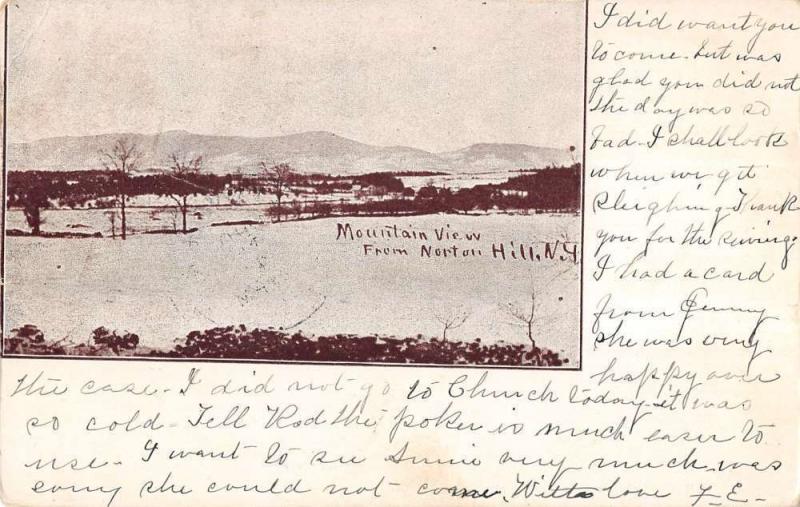 I did want you
to come. but was
glad you did not
the day was so
bad - I shall look
when we get
sleighing. Thank
you for the
I had a card
from Jenny
she was very
happy over
Mountain View
From Norton Hill, N.Y
the case - I did not go to Church today - it was
so cold - Tell Rod the poker is much easier to
use - I want to see very much, was
sorry she could not come. With love F. E -